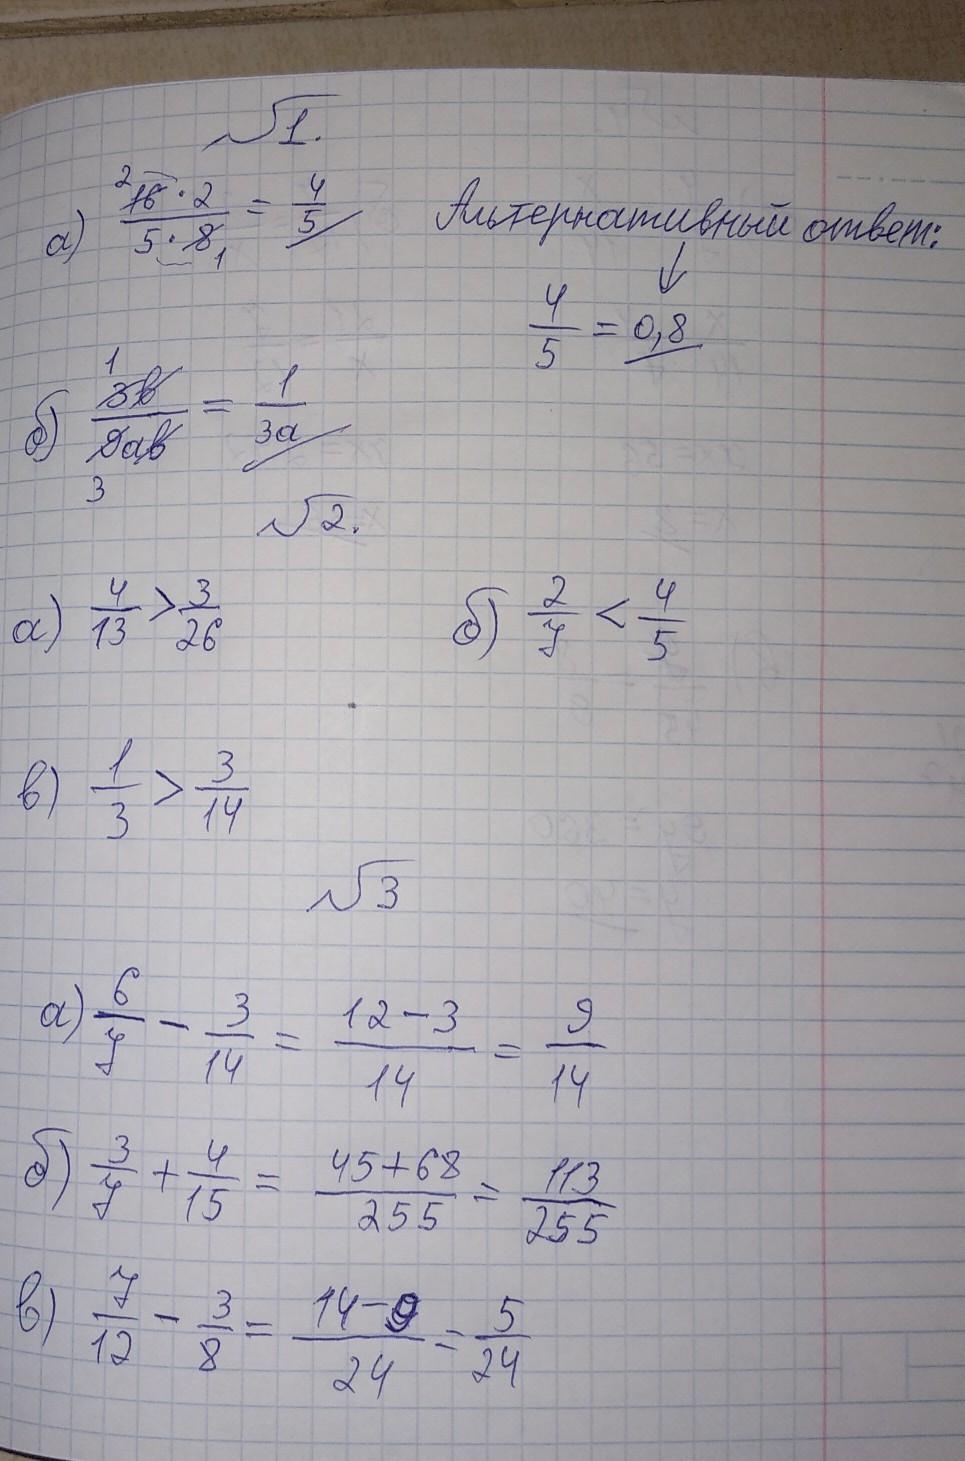 №1.
а) (16 · 2)/(5 · 8) = 4/5 Альтернативный ответ:
2 1
4/5 = 0,8
б) 3в/9ав = 1/3а
1 3
№2.
а) 4/13 > 3/26 б) 2/7 < 4/5
в) 1/3 > 3/14
№3
а) 6/7 - 3/14 = (12-3)/14 = 9/14
б) 3/7 + 4/15 = (45+68)/255 = 113/255
в) 7/12 - 3/8 = (14-9)/24 = 5/24